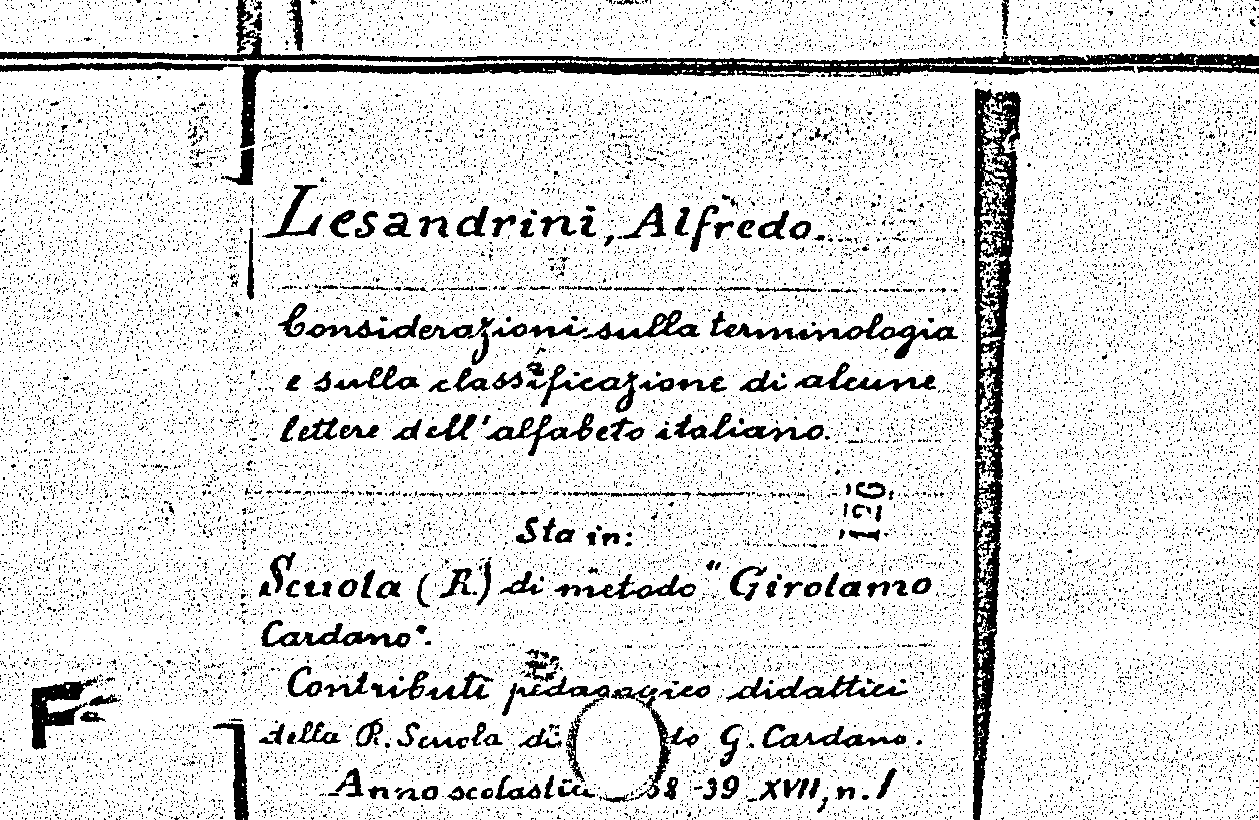 Lesandrini, Alfredo.
Considerazioni sulla terminologia
e sulla classificazione di alcune
lettere dell'alfabeto italiano.
126
Sta in:
Scuola (R.) di metodo "Girolamo
Cardano".
Contributi pedagogico didattici
della R. Scuola di to G. Cardano.
Anno scolastic 38-39 XVII, n. 1